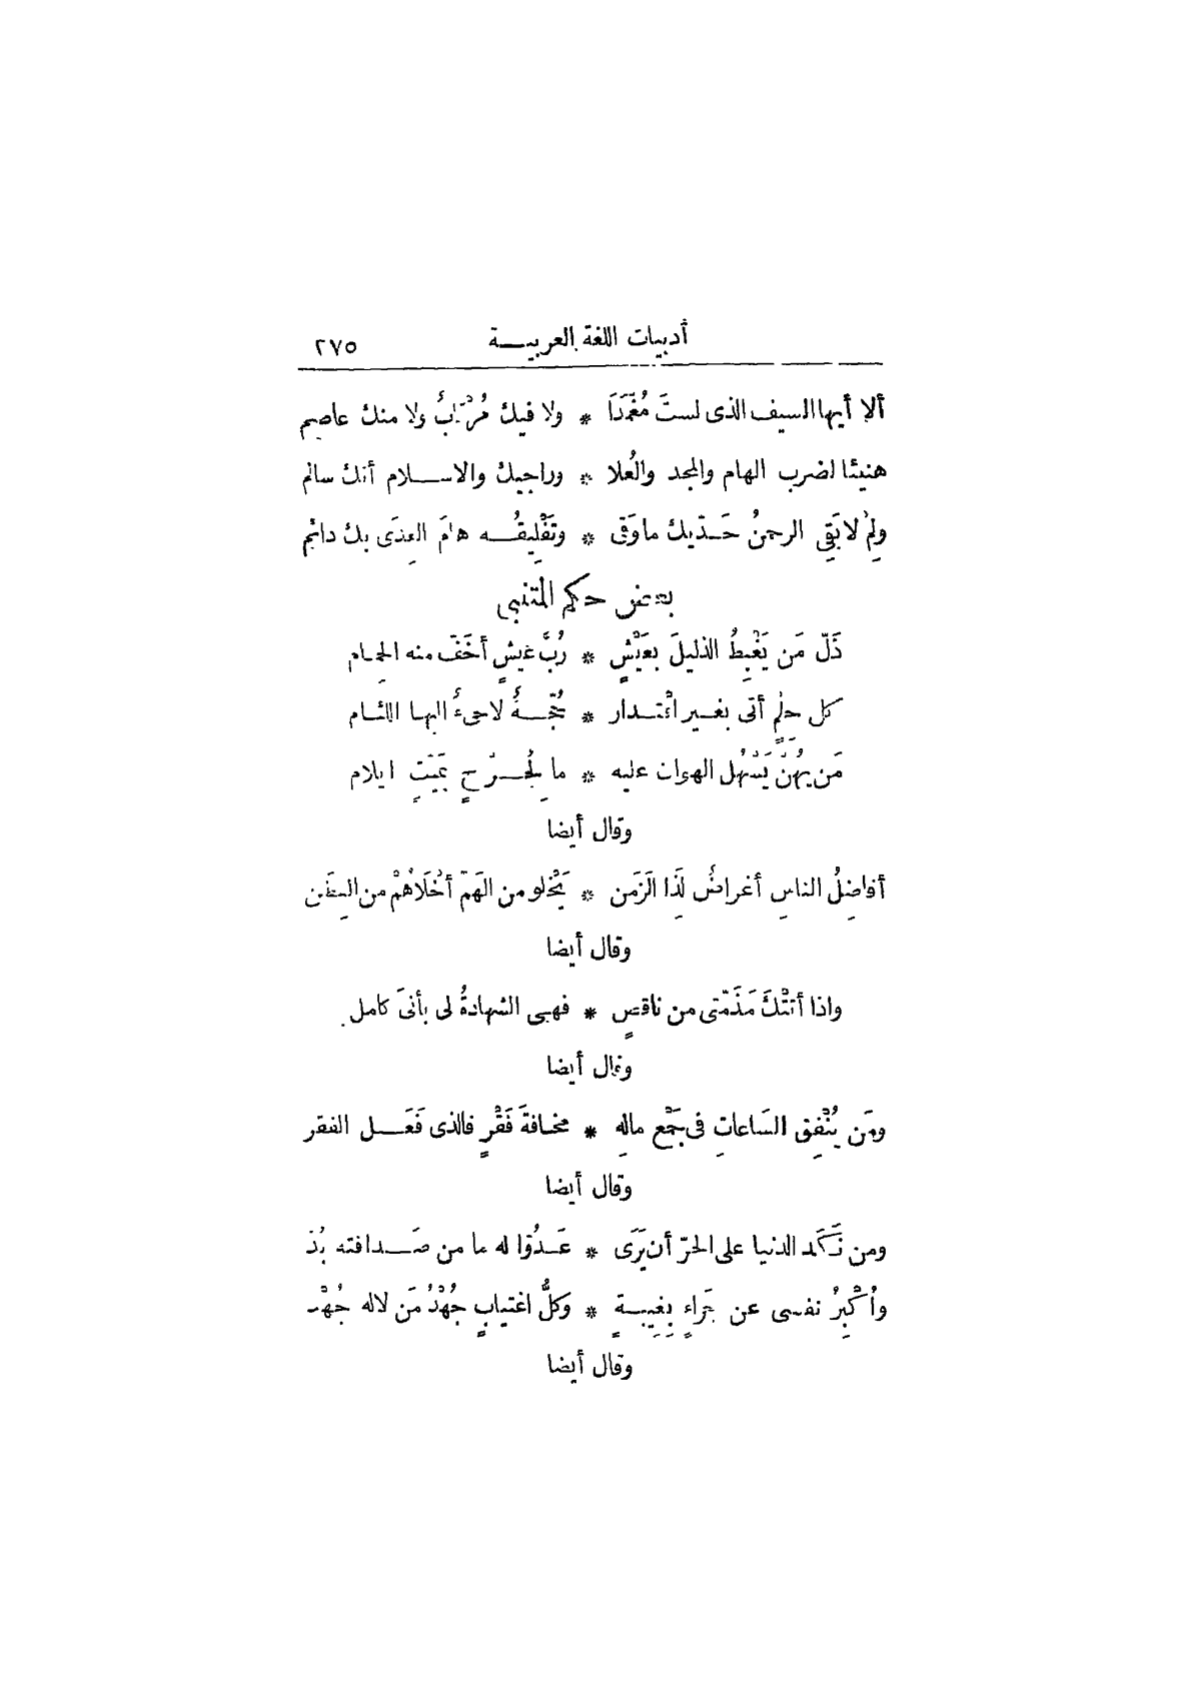 أدبيات اللغة العربيـــة ٢٧٥
ألا أيها السيف الذى لستَ مُغْمَدَا * ولا فيك مُرْتابٌ ولا منك عاصم
هنيئا لضرب الهام والمجد والعُلا * وراجيك والاســلام أنك سالم
ولِمْ لا يَقِى الرحمنُ حَــدّيك ما وَقَى * وتَفْلِيقُــه هامَ العِدَى بك دائم
بعض حكم المتنبى
ذَلّ مَن يَغْبِطُ الذليلَ بعَيْشٍ * رُبَّ عَيشٍ أخَفّ منه الحِمام
كل حِلْمٍ أتى بغــير اقْتــدار * حُجّــةٌ لاجىءٌ اليها اللئام
مَن يَهُنْ يَسْهُلِ الهوان عليه * ما لِجُــرْحٍ بمَيّتٍ ايلام
وقال أيضا
أفاضِلُ الناسِ أغراضٌ لِذَا الزَمَنِ * يَخْلو من الهَمّ أخْلاهُمْ من الفِطَن
وقال أيضا
واذا أتَتْكَ مَذَمّتى من ناقصٍ * فهى الشهادةُ لى بأنىَ كامل
وقال أيضا
ومَن يُنْفِقِ السَاعاتِ فى جَمْعِ مالِهِ * مخافةَ فَقْرٍ فالذى فَعَــل الفقر
وقال أيضا
ومن نَكَد الدنيا على الحرّ أن يَرَى * عَــدُوّا له ما من صَــداقته بُدّ
وأُكْبِرُ نفسى عن جَزاءٍ بِغِيبــةٍ * وكلُّ اغتيابٍ جُهْدُ مَن لاله جُهْد
وقال أيضا